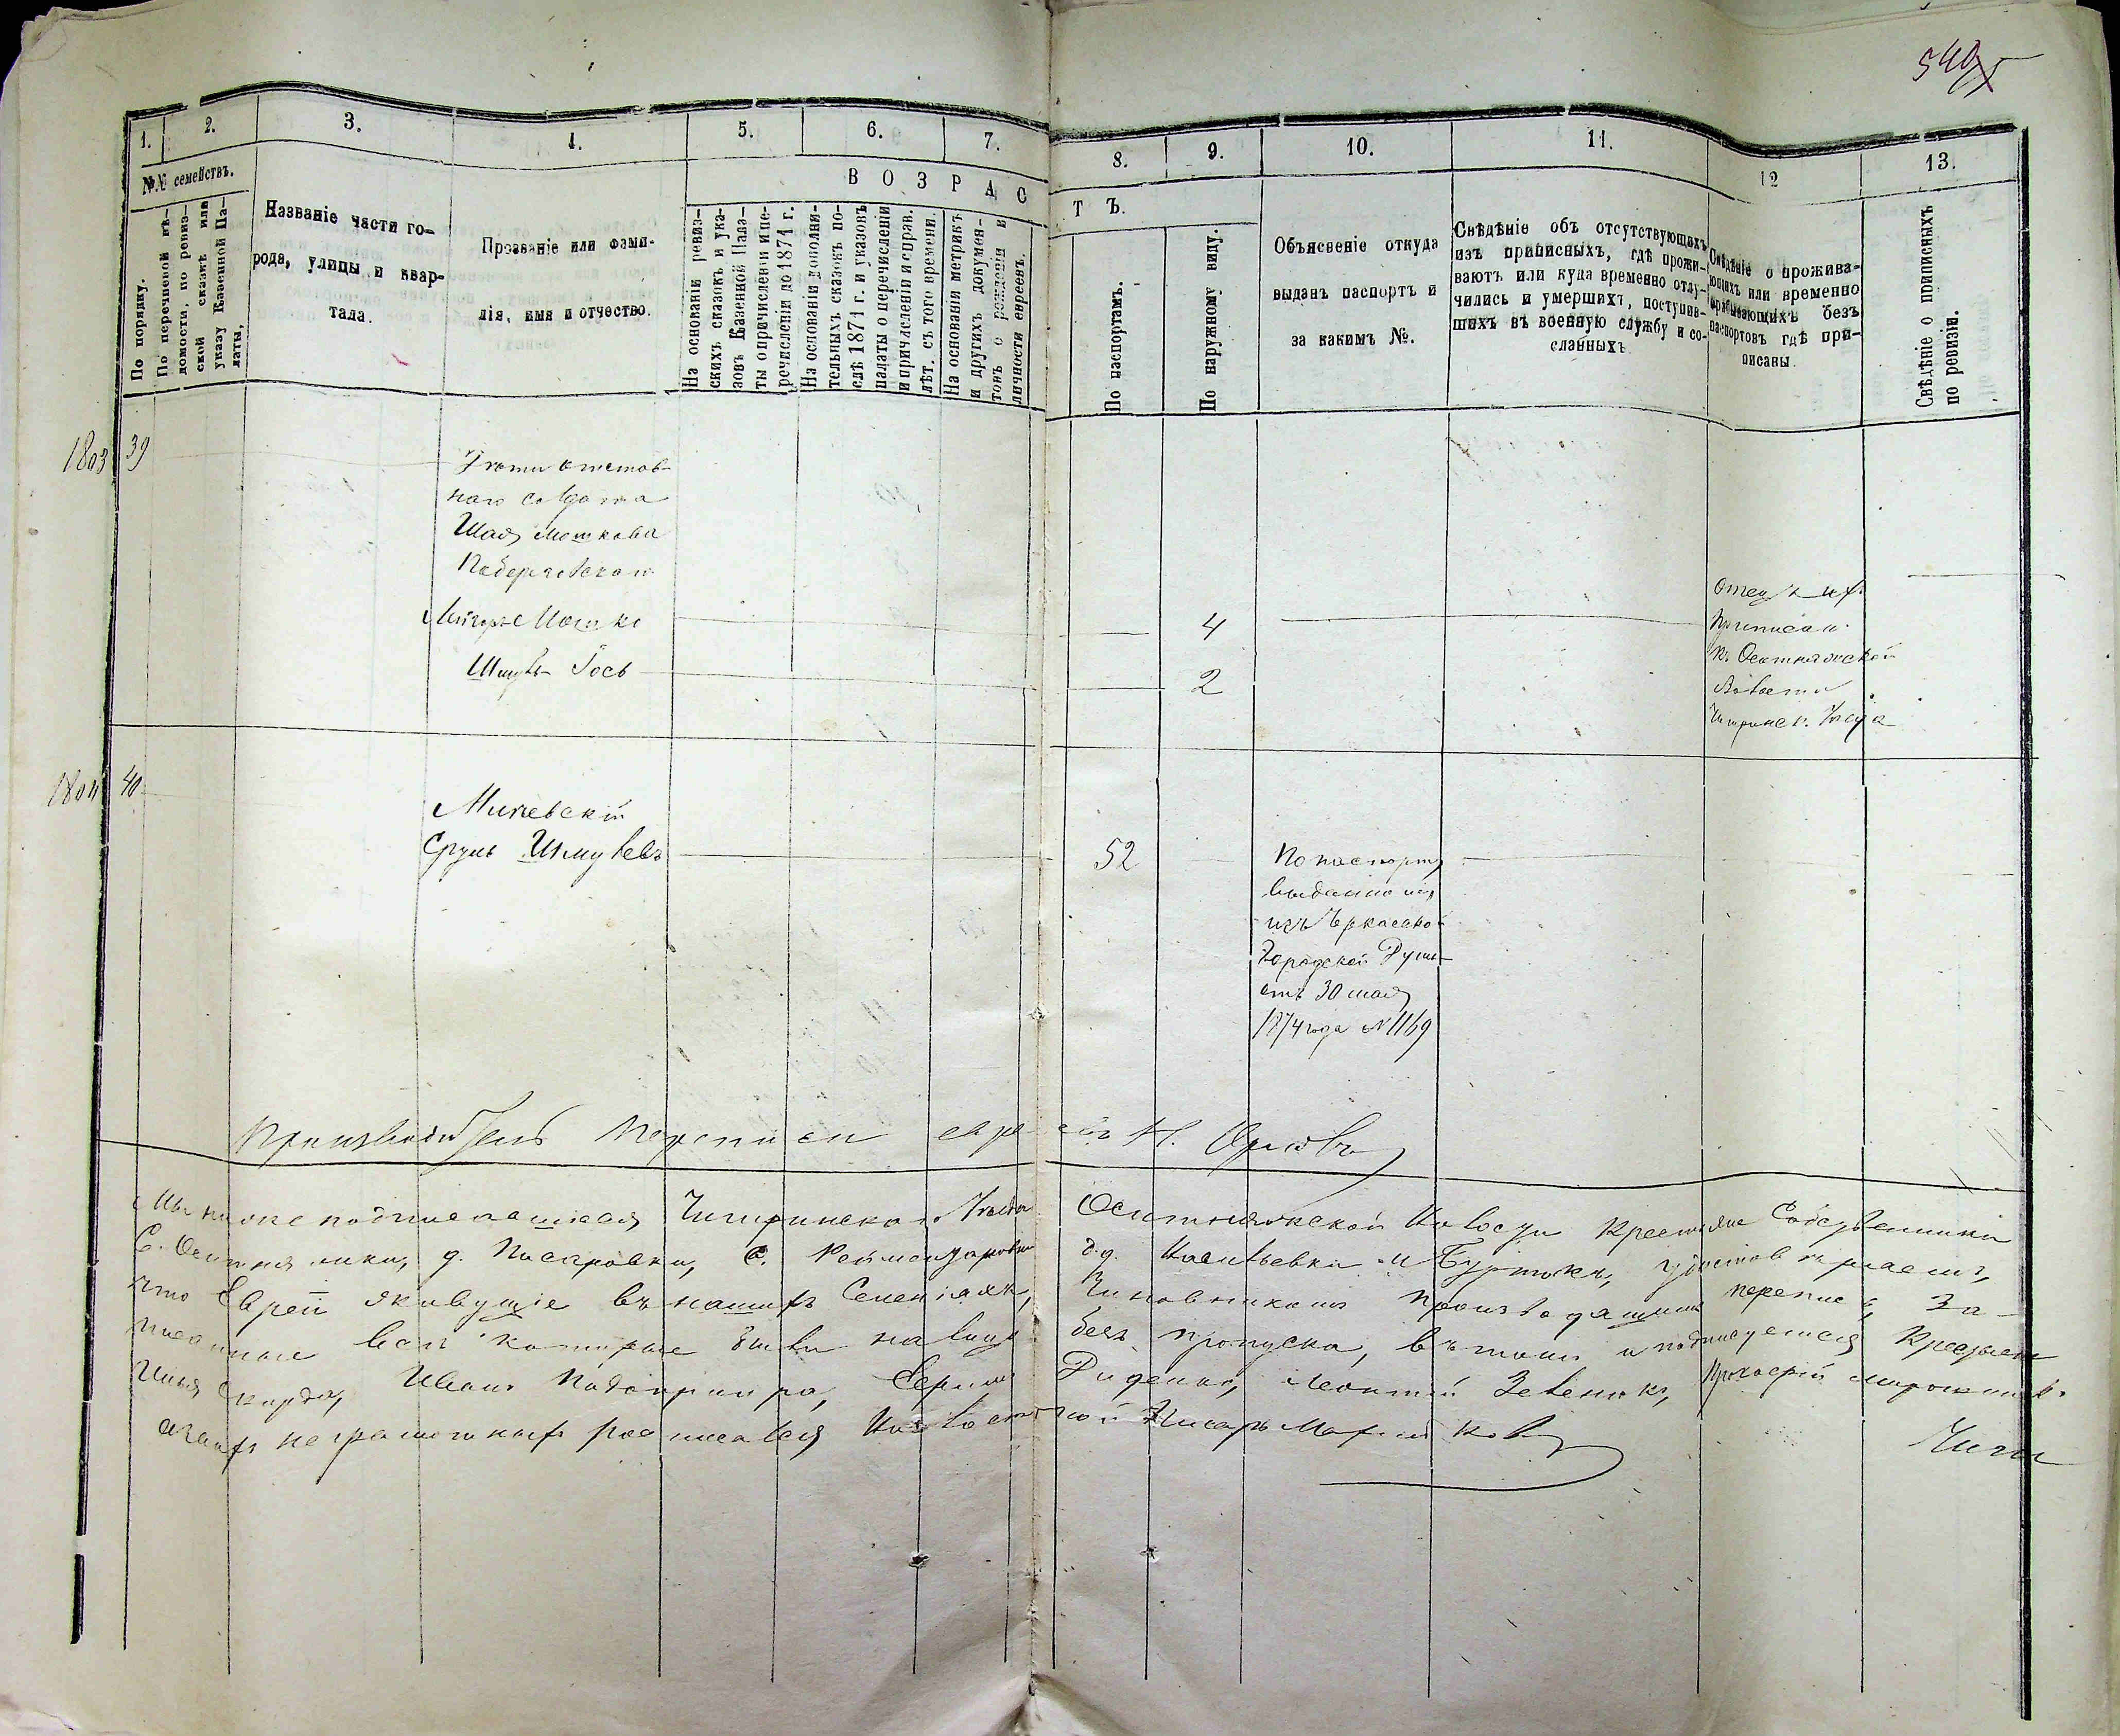 1.
2.
3.
4.
5.
6.
7.
8.
9.
10.
11.
12
13.
№№ семействъ.
По порядку.
По перечневой вѣ-
домости, по ревиз-
ской сказкѣ или
указу Казенной Па-
латы,
Названіе части го-
рода, улицы и квар-
тала.
Прозваніе или фами-
лія, имя и отчество.
ВОЗРАС
ТЪ.
На основаніи ревиз-
скихъ сказокъ и ука-
зовъ Казенной Пала-
ты о причисленіи и пе-
речисленіи до 1871 г.
На основаніи дополни-
тельныхъ сказокъ по-
слѣ 1871 г. и указовъ
палаты о перечисленіи
и причисленіи и справ.
лѣт. съ того времени.
На основаніи метрикъ
и другихъ докумен-
товъ о рожденіи и
личности евреевъ.
По паспортамъ.
По наружному виду.
Объясненіе откуда
выданъ паспортъ и
за какимъ №.
Свѣдѣніе объ отсутствующихъ
изъ приписныхъ, гдѣ прожи-
ваютъ или куда временно отлу-
чились и умершихъ, поступив-
шихъ въ военную службу и со-
сланныхъ
Свѣдѣніе о прожива-
ющихъ или временно
пребывающихъ безъ
паспортовъ гдѣ при-
писаны.
Свѣдѣніе о приписныхъ
по ревизіи.
1803 39
отстав-
наго солдата
Шая Мошкова
Лейзоръ Мошко
4
Шмуль Іось
2
Отецъ ихъ
приписан.
къ Оситняжской
Волости
Чигринск. Уезда
1804 40
Срулъ Шмулевъ
52
По паспорту
выданному
изъ Черкаской
Городской Думы
отъ 30 мая
1874 года № 1169
Производитель переписи евреевъ Н. Орловъ
Мы ниже подписавшіеся Чигринскаго Уезда Оситняжской Волости Крестьяне Собственники
С. Оситняжки, д. Писаровки, С. Реймонтаровки д.д. Васильевки и Буртокъ, удостовѣряемъ,
что Евреи живущіе въ нашихъ Селеніяхъ, Чиновникомъ производящимъ перепись, за-
писанные всѣ которые были на лицо безъ пропуска, въ томъ и подписуемся Крестьяне
Илья Скирда, Иванъ Подопригора, Диденко, Леонтій Зеленюкъ,
а за нихъ неграмотныхъ росписался Волостной Писарь